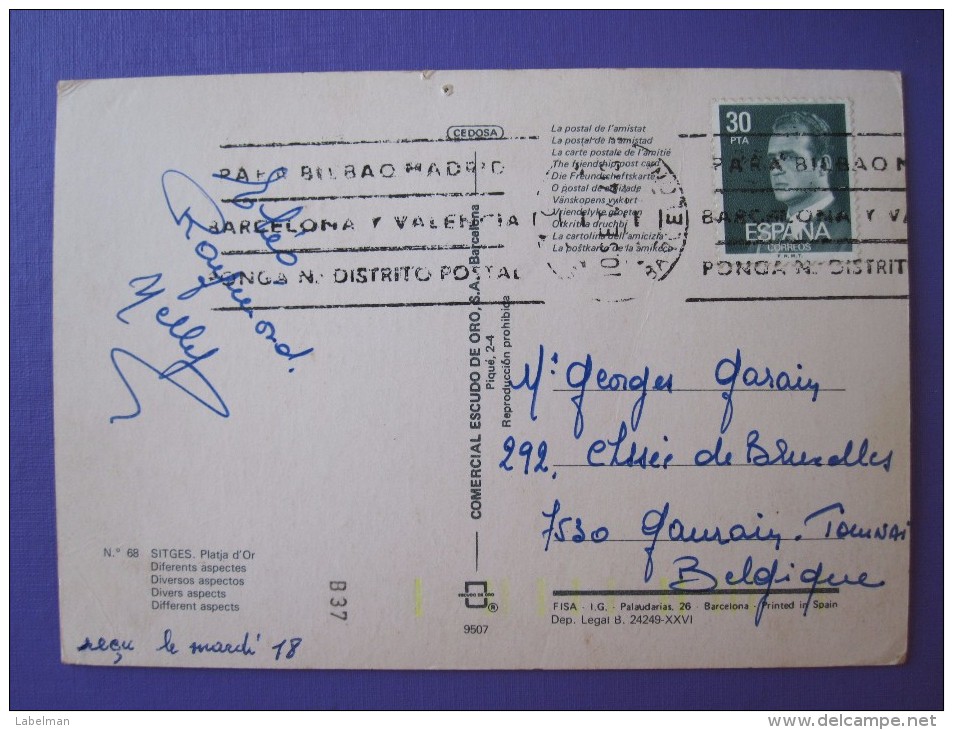 CEDOSA
La postal de l'amistat
La postal de la amistad
La carte postale de l'amitié
The friendship post card
Die Freundschaftskarte
O postal de amizade
Vänskopens vykort
Vriendelyke groeten
Otkritka druchbi
La cartolina dell'amicizia
La postkarto de la amikeco
30
PTA
ESPAÑA
CORREOS
F.N.M.T.
PARA BILBAO MADRID
BARCELONA Y VALENCIA
PONGA N.º DISTRITO POSTAL
PARA BILBAO M
BARCELONA Y VA
PONGA N.º DISTRIT
Raymond.
Nelly
COMERCIAL ESCUDO DE ORO, S.A. Barcelona
Piqué, 2-4
Reproducción prohibida
Mr Georges Garain
292, Chssée de Bruxelles
7530 Gaurain-Tournai
Belgique
N.º 68 SITGES. Platja d'Or
Diferents aspectes
Diversos aspectos
Divers aspects
Different aspects
B 37
ESCUDO DE ORO
®
9507
FISA - I.G. - Palaudarias, 26 - Barcelona - Printed in Spain
Dep. Legal B. 24249-XXVI
reçu le mardi 18
Labelman
www.delcampe.net